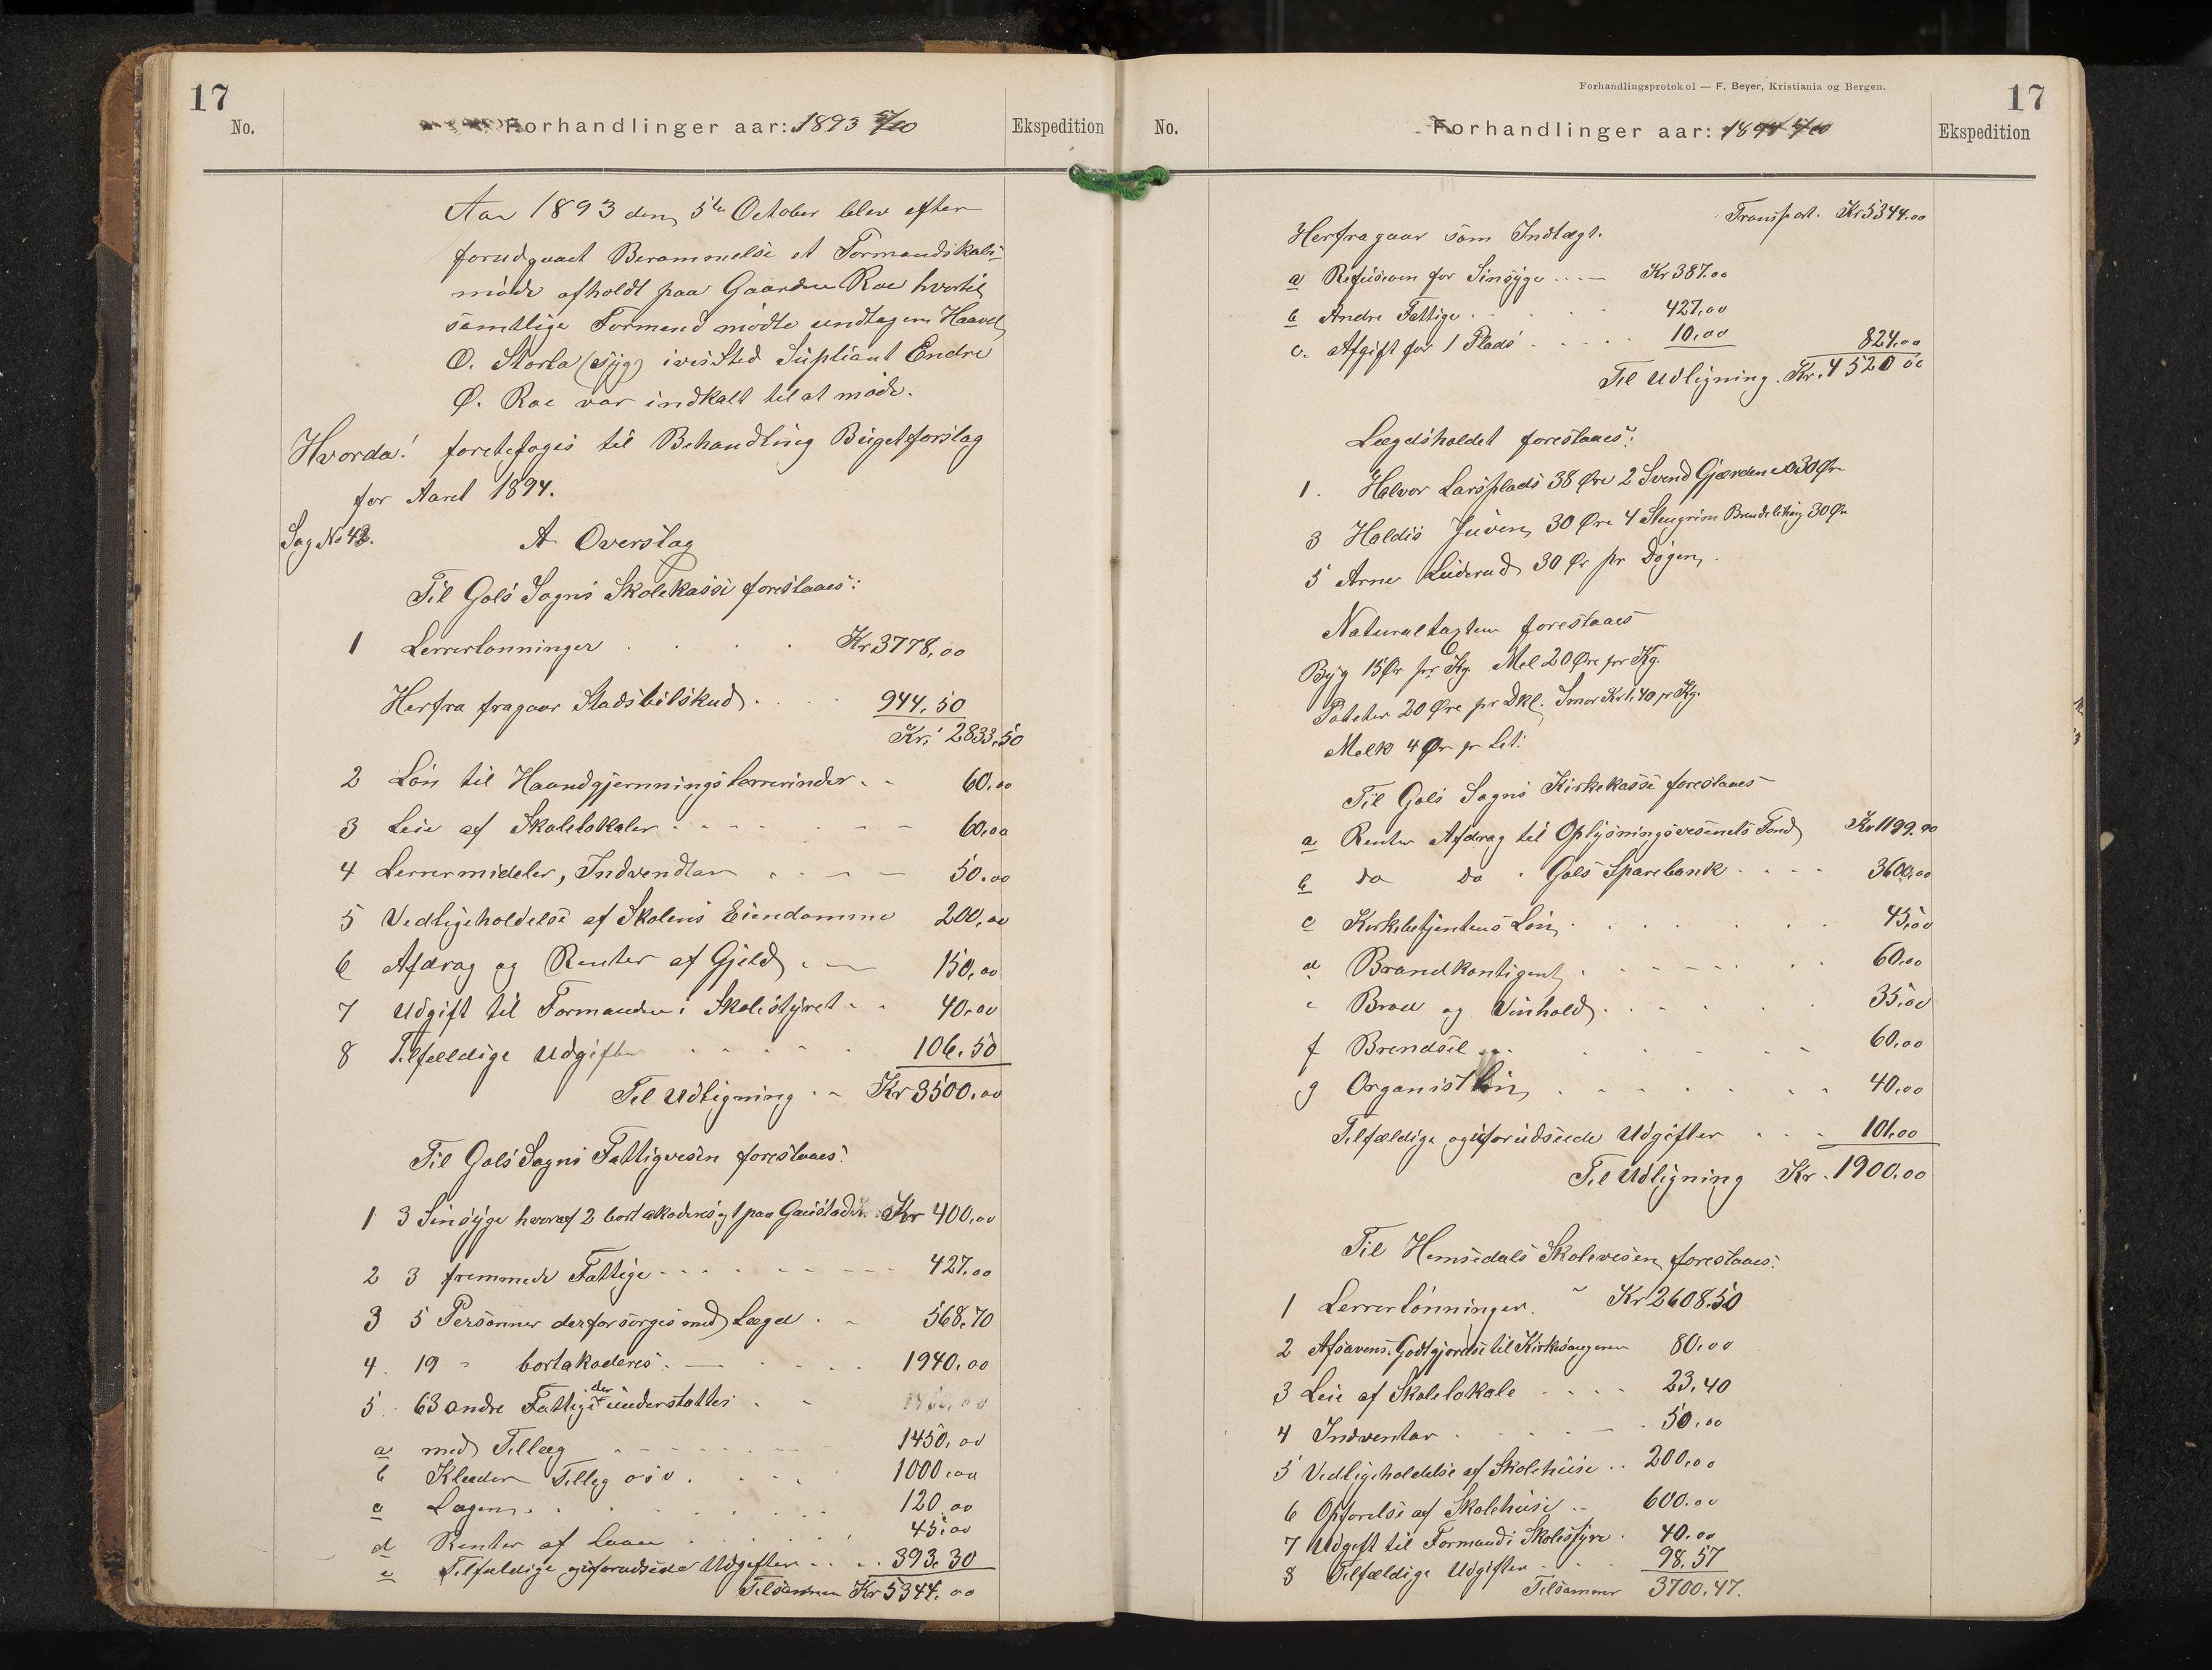 17
No.
Forhandlinger aar: 1893 5/10
Ekspedition
Aar 1893 den 5te October blev efter
forudgaaet Berammelse et Formandskabs-
møde afholdt paa Gaarden Roe hvortil
samtlige Formænd mødte undtagen Haavel
O. Storla (syg) i vis Sted Supliant Endre
Ø. Roe var indkalt til at møde.
Hvorda! foretoges til Behandling Bugetforslag
for Aaret 1894.
Sag No 42. A Overslag
Til Gols Sogns Skolekasse foreslaaes:
1 Lærerlønninger . . . . Kr 3778,00
Herfra fragaar Stadsbilskud . . 944,50
Kr. 2833,50
2 Løn til Haandgjerningslærerinder . - 60,00
3 Leie af Skolelokaler . - - - - - 60,00
4 Lerrermideler, Indvendtar . - - - 50.00
5 Vedligeholdelse af Skolens Eiendomme 200,00
6 Afdrag og Renter af Gjeld . — 150,00
7 Udgift til Formanden i Skolestyret - - 40,00
8 Tilfældige Udgifter . . . . . 106.50
Til Udligning . - Kr 3500,00
Til Gols Sogns Fattigvesen foreslaaes:
1 3 Sinsyge hvoraf 2 bortakoderes og 1 paa Gaustad Kr 400,00
2 3 fremmede Fattige - - - - - - 427.00
3 5 Personner der forsørges med Lægd . - 568,70
4. 19 " bortakoderes . — . . . . 1940.00
5. 63 andre Fattige der understøttes . -
a med Tillæg - - - - - - 1450,00
b Klæder Tillæg osv . . . . 1000,00
c Lægen . . . . . . 120.00
d Renter af Laan . . . . 45,00
e Tilfældige og uforudseede Udgifter . . . 393.30
Tilsammen Kr 5344.00
Forhandlingsprotokol — F. Beyer, Kristiania og Bergen.
17
No.
Forhandlinger aar: 1894 5/10
Ekspedition
Transport. Kr 5344.00
Herfra gaar som Indtægt.
a Refusionen for Sinsyge . . . — Kr 387.00
b Andre Fattige . . . . 427,00
c. Afgift for 1 Plads . . . . . 10,00 824.00
Til Udligning . Kr. 4520 00
Lægdsholdet foreslaaes:
1. Halvor Larsplads 38 Øre 2 Svend Gjærden 30 Ør
3 Haldis Juven 30 Øre 4 Stengrim Brendelihaug 30 Ør
5 Arne Luderud 30 Ør pr Døgen.
Naturaltaxten foreslaaes
Byg 15 Ør pr. Kg. Mel 20 Øre pr Kg.
Poteter 20 Øre pr Dkl. Smør Kr 1.40 pr Kg.
Melk 4 Ør pr Lit:
Til Gols Sogns Kirkekasse foreslaaes
a Renter Afdrag til Oplysningsvesenets Fond Kr 1199.00
b Do Do " Gols Sparebank . . . . 3600,00
c Kirkebetjentens Løn . . . . . . 45,00
d Brandkontigent . . . - - - . . 60.00
e Brød og Vinhold . . . . . . 35,00
f Brendsel . . . . . . . 60,00
g Organistløn . . . . . . . 40,00
Tilfældige og uforudseede Udgifter . . . 101.00
Til Udligning Kr. 1900.00
Til Hemsedals Skolevesen foreslaaes:
1 Lerrerlønninger. - Kr 2608.50
2 Afsavens. Godtgjørelse til Kirkesangeren 80.00
3 Leie af Skolelokale . . . . 23,40
4 Indventar . . . . - . 50,00
5 Vedligeholdelse af Skolehuse . . 200,00
6 Opførelse af Skolehuse . . 600.00
7 Udgift til Formand i Skolestyre . 40.00
8 Tilfældige Udgifter . . . 98.57
Tilsammen 3700.47.